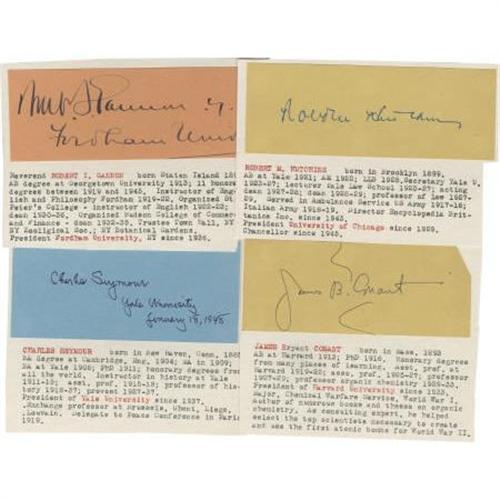 Robt I Gannon S.J.
Fordham Univ
Reverend ROBERT I. GANNON born Staten Island 18
AB degree at Georgetown University 1913; 11 honorary
degrees between 1919 and 1945, Instructor of Eng
lish and Philosophy Fordham 1919-22, Organized St
Peter's College - Instructor of English 1922-23;
dean 1930-36, Organized Hudson College of Commerce
and Finance - dean 1933-35, Trustee Town Hall, NY
NY Zoological Soc.; NY Botanical Gardens,
President Fordham University, NY since 1936.
Robert M. Hutchins
ROBERT M. HUTCHINS born in Brooklyn 1899,
AB at Yale 1921; AM 1922; LLB 1925, Secretary Yale U.
1923-27; lecturer Yale Law School 1923-27; acting
dean 1927-28; dean 1928-29; professor of law 1927-
29, Served in Ambulance Service US Army 1917-18;
Italian Army 1918-19, Director Encyclopedia Brit-
annica Inc. since 1943,
President University of Chicago since 1929,
Chancellor since 1945.
Charles Seymour
Yale University
January 18, 1945
CHARLES SEYMOUR born in New Haven, Conn. 1885
BA degree at Cambridge, Eng. 1904; MA in 1909;
BA at Yale 1908; PhD 1911; honorary degrees from
all the world, Instructor in history at Yale
1911-15; asst. prof. 1915-18; professor of his-
tory 1918-37; provost 1927-37,
President of Yale University since 1937.
Exchange professor at Brussels, Ghent, Liege,
Louvain. Delegate to Peace Conference in Paris
1919.
James B. Conant
JAMES Bryant CONANT born in Mass. 1893
AB at Harvard 1913; PhD 1916, Honorary degrees
from many places of learning. Asst. prof. at
Harvard 1919-25; asso. prof. 1925-27; professor
1927-29; professor organic chemistry 1929-33.
President of Harvard University since 1933,
Major, Chemical Warfare Service, World War I.
Author of numerous books and theses on organic
chemistry. As consulting expert, he helped
select the top scientists necessary to create
and use the first atomic bombs for World War II.